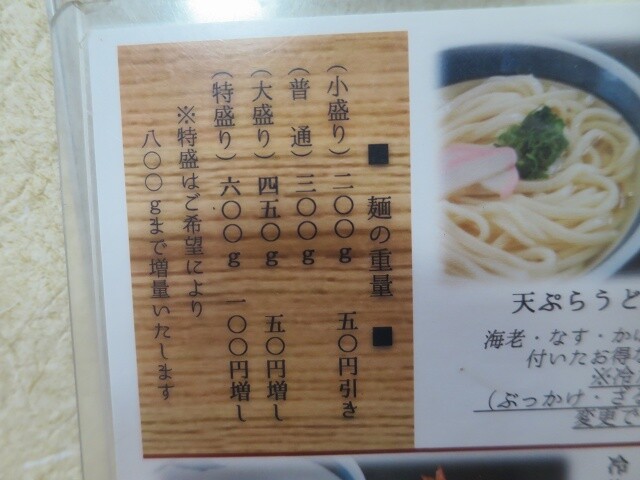 ■ 麺の重量 ■
(小盛り) 二〇〇g 五〇円引き
(普 通) 三〇〇g
(大盛り) 四五〇g 五〇円増し
(特盛り) 六〇〇g 一〇〇円増し
※特盛はご希望により
八〇〇gまで増量いたします
天ぷらうど
海老・なす・か
付いたお得
※冷
(ぶっかけ・さ
変更で
冷